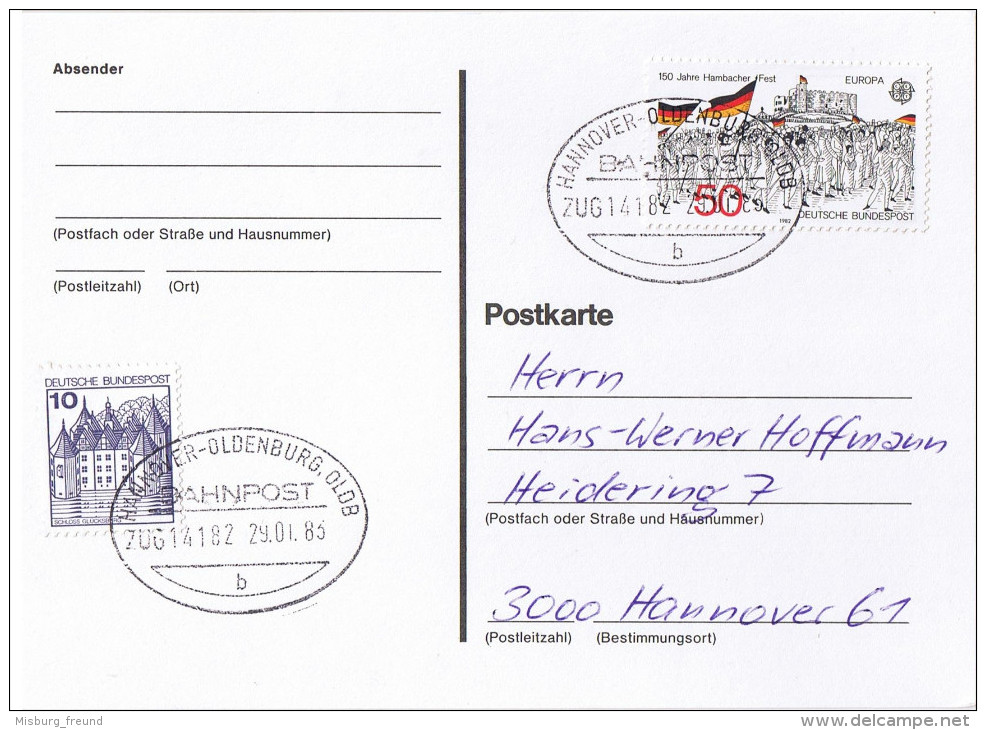 Absender
(Postfach oder Straße und Hausnummer)
(Postleitzahl) (Ort)
150 Jahre Hambacher Fest EUROPA
50
1982 DEUTSCHE BUNDESPOST
HANNOVER-OLDENBURG, OLDB
BAHNPOST
ZUG14182 29.01.85
b
DEUTSCHE BUNDESPOST
10
SCHLOSS GLÜCKSBURG
HANNOVER-OLDENBURG, OLDB
BAHNPOST
ZUG14182 29.01.85
b
Postkarte
Herrn
Hans-Werner Hoffmann
Heidering 7
(Postfach oder Straße und Hausnummer)
3000 Hannover 61
(Postleitzahl) (Bestimmungsort)
Misburg_freund
delcampe.net